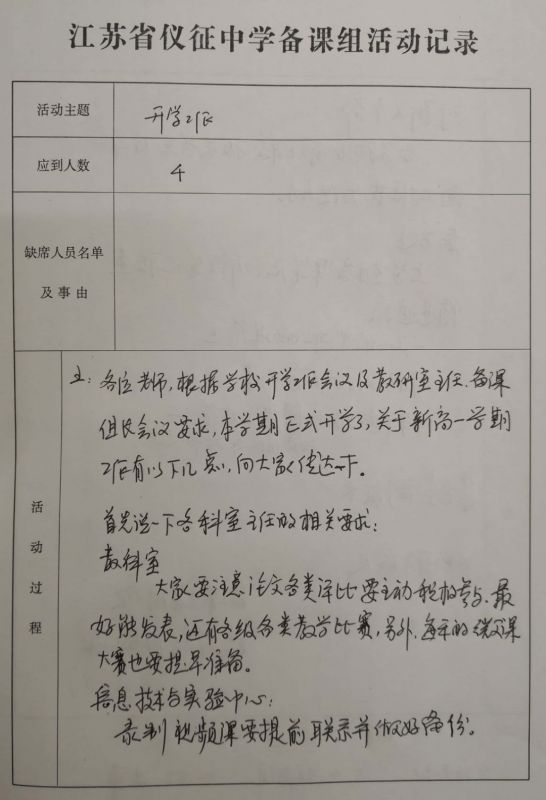 江苏省仪征中学备课组活动记录
活动主题
开学工作
应到人数
4
缺席人员名单
及事由
活动过程
主：各位老师，根据学校开学工作会议及教研室主任、备课
组长会议要求，本学期正式开学了，关于新高一学期
工作有以下几点，向大家传达一下。
首先说一下各科室主任的相关要求：
教科室
大家要注意论文各类评比要主动积极参与，最
好能发表，还有各级各类教学比赛，另外，每年的课
大赛也要提早准备。
信息技术与实验中心：
录制视频课要提前联系并做好备份。